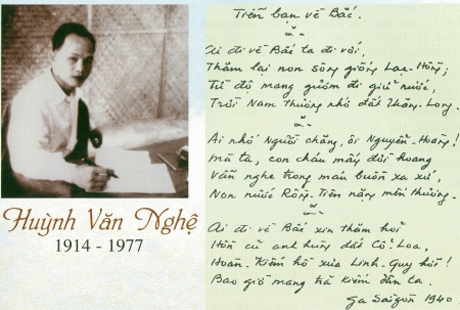 Tiễn bạn về Bắc.
Ai đi về Bắc ta đi với,
Thăm lại non sông giống Lạc-Hồng;
Từ độ mang gươm đi giữ nước,
Trời Nam thương nhớ đất Thăng-Long.
Ai nhớ Người chăng, ôi Nguyễn-Hoàng!
Mà ta, con cháu mấy đời hoang
Vẫn nghe trong máu buồn xa xứ,
Non nước Rồng-Tiên nặng mến thương.
Ai đi về Bắc xin thăm hỏi
Hồn cũ anh hùng đất Cổ-Loa,
Hoàn-Kiếm hồ xưa Linh-Quy hỡi!
Bao giờ mang trả kiếm dân ta.
Ga Saigon 1940
Huỳnh Văn Nghệ
1914 - 1977